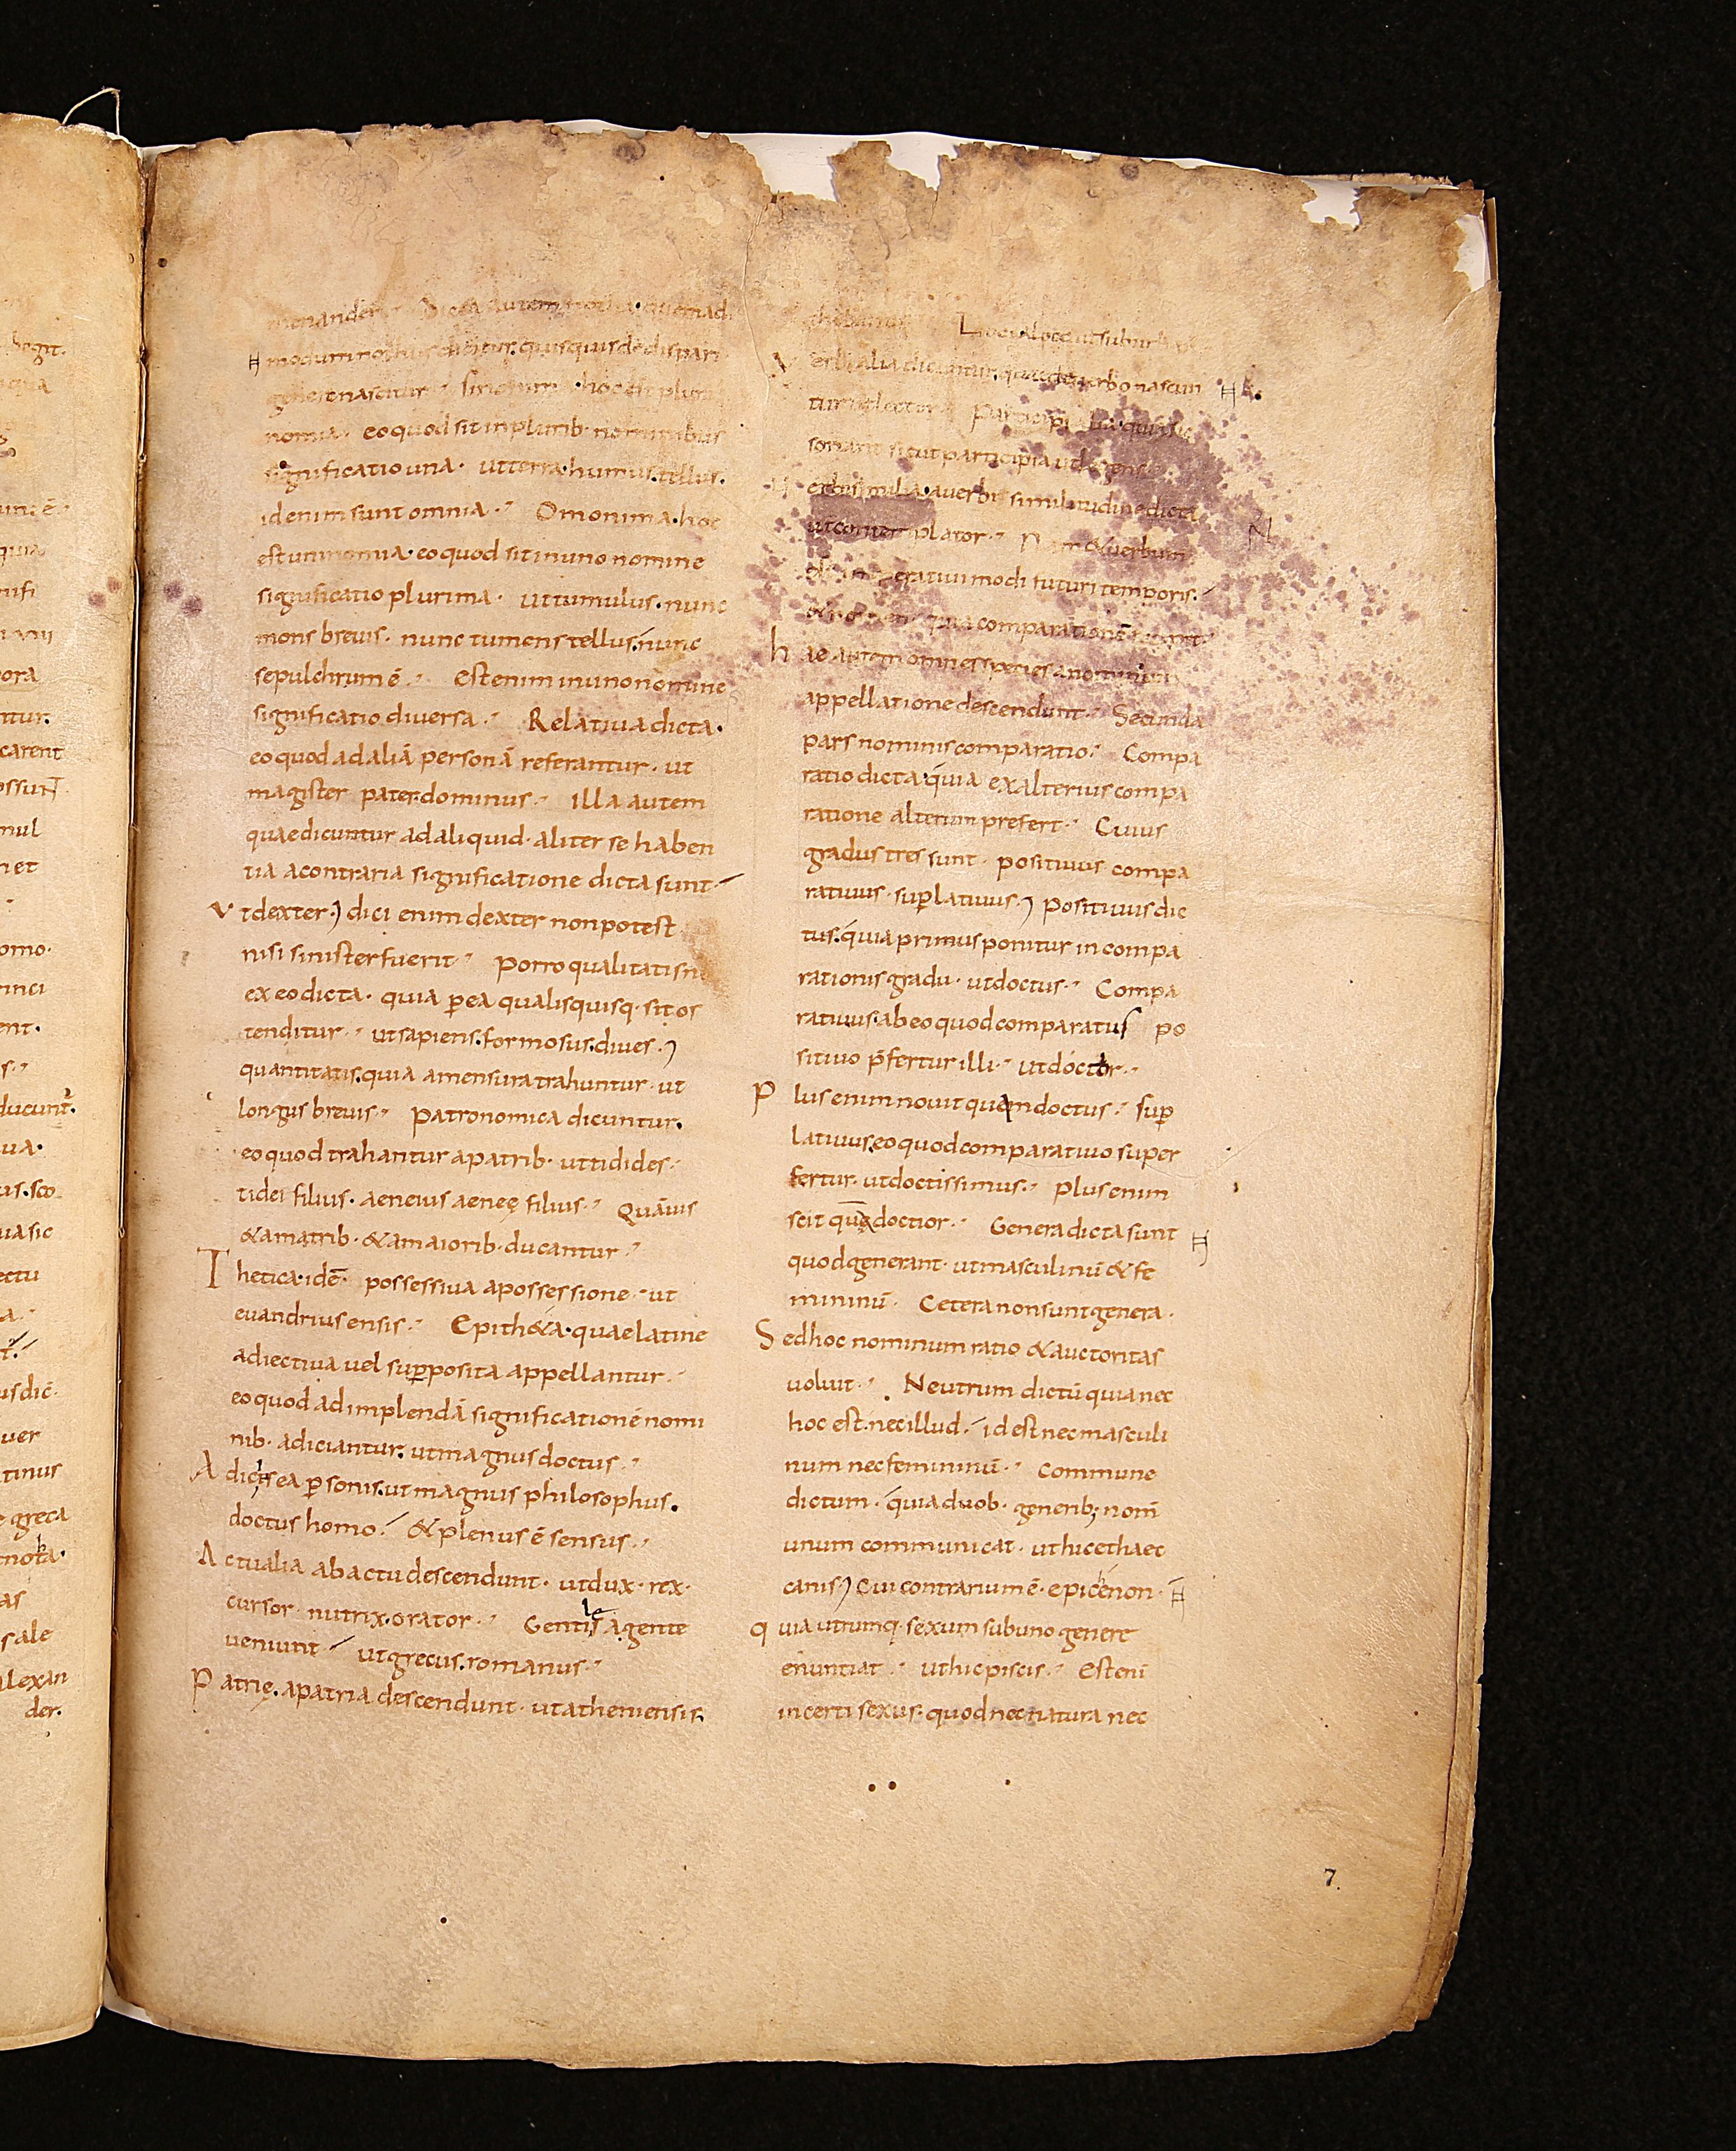 hegit.
quia
nifi
pora
ntur.
carent
ossunt.
mul
net
omo.
inci
ent.
ducunt.
ua.
us. sco
ua sic
ectu
usdic̄.
uer
tinus
greca
nota.
as
sale
alexan
der.
menander. Dicta autem notha. quemad
modum nothus dicitur. quisquis de dispari
genere nascitur. Sinonima. hoc est pluri
nomia. eo quod sit in plurib. nominibus
significatio una. ut terra. humus. tellus.
id enim sunt omnia. Omonima. hoc
est uninomia. eo quod sit in uno nomine
significatio plurima. ut tumulus. nunc
mons breuis. nunc tumens tellus. nunc
sepulchrum ē. est enim in uno nomine
significatio diuersa. Relatiua dicta.
eo quod ad aliā personā referantur. ut
magister pater. dominus. Illa autem
quae dicuntur ad aliquid. aliter se haben
tia a contraria significatione dicta sunt.
ut dexter. dici enim dexter non potest
nisi sinister fuerit. porro qualitatis n
ex eo dicta. quia ꝑ ea qualis quisq. sit os
tenditur. ut sapiens. formosus. diues.
quantitatis. quia a mensura trahuntur. ut
longus breuis. patronomica dicuntur.
eo quod trahantur a patrib. ut tidides.
tidei filius. aeneius aeneę filius. Quāuis
& a matrib. & a maiorib. ducantur.
Thetica. idē. possessiua a possessione. ut
euandrius ensis. Epith&a. quae latine
adiectiua uel suꝑposita appellantur.
eo quod ad implendā significationē nomi
nib. adiciantur. ut magnus doctus.
Adicis ea ꝑsonis. ut magnus philosophus.
doctus homo. & plenus ē sensus.
Actualia ab actu descendunt. ut dux. rex.
cursor. nutrix. orator. Gentis a gente
le
ueniunt ut grecus. romanus.
Patrię. a patria descendunt. ut atheniensis.
thebanus. Loci a loco ut suburb
Verbialia dicuntur. quae de uerbo nascun
tur ut lector. participialia. quia sic
sonant sicut participia ut legens
Uerbis similia. a uerbi similitudine dicta
ut contemplator. Nam & uerbum
est imperatiui modi futuri temporis.
& nomen. quia comparationē
hae autem omnes species a nominum
appellatione descendunt. Secunda
pars nominis comparatio. Compa
ratio dicta. quia ex alterius compa
ratione alterum prefert. Cuius
gradus tres sunt. positiuus compa
ratiuus. suꝑlatiuus. positiuus dic
tus. quia primus ponitur in compa
rationis gradu. ut doctus. Compa
ratiuus. ab eo quod comparatus po
sitiuo p̄fertur illi. ut doctor.
Plus enim nouit quam doctus. Suꝑ
latiuus. eo quod comparatiuo super
fertur. ut doctissimus. plus enim
scit quā doctior. Genera dicta sunt
quod generant. ut masculinū & fe
mininū. Cetera non sunt genera.
Sed hoc nominum ratio & auctoritas
uoluit. Neutrum dictū quia nec
hoc est. nec illud. id est nec masculi
num nec femininū. commune
dictum. quia duob. generib; nom̄
unum communicat. ut hic et haec
canis. Cui contrarium ē. epicenon.
quia utrumq. sexum sub uno genere
enuntiat. ut hic piscis. est eni
incerti sexus. quod nec natura nec
7.